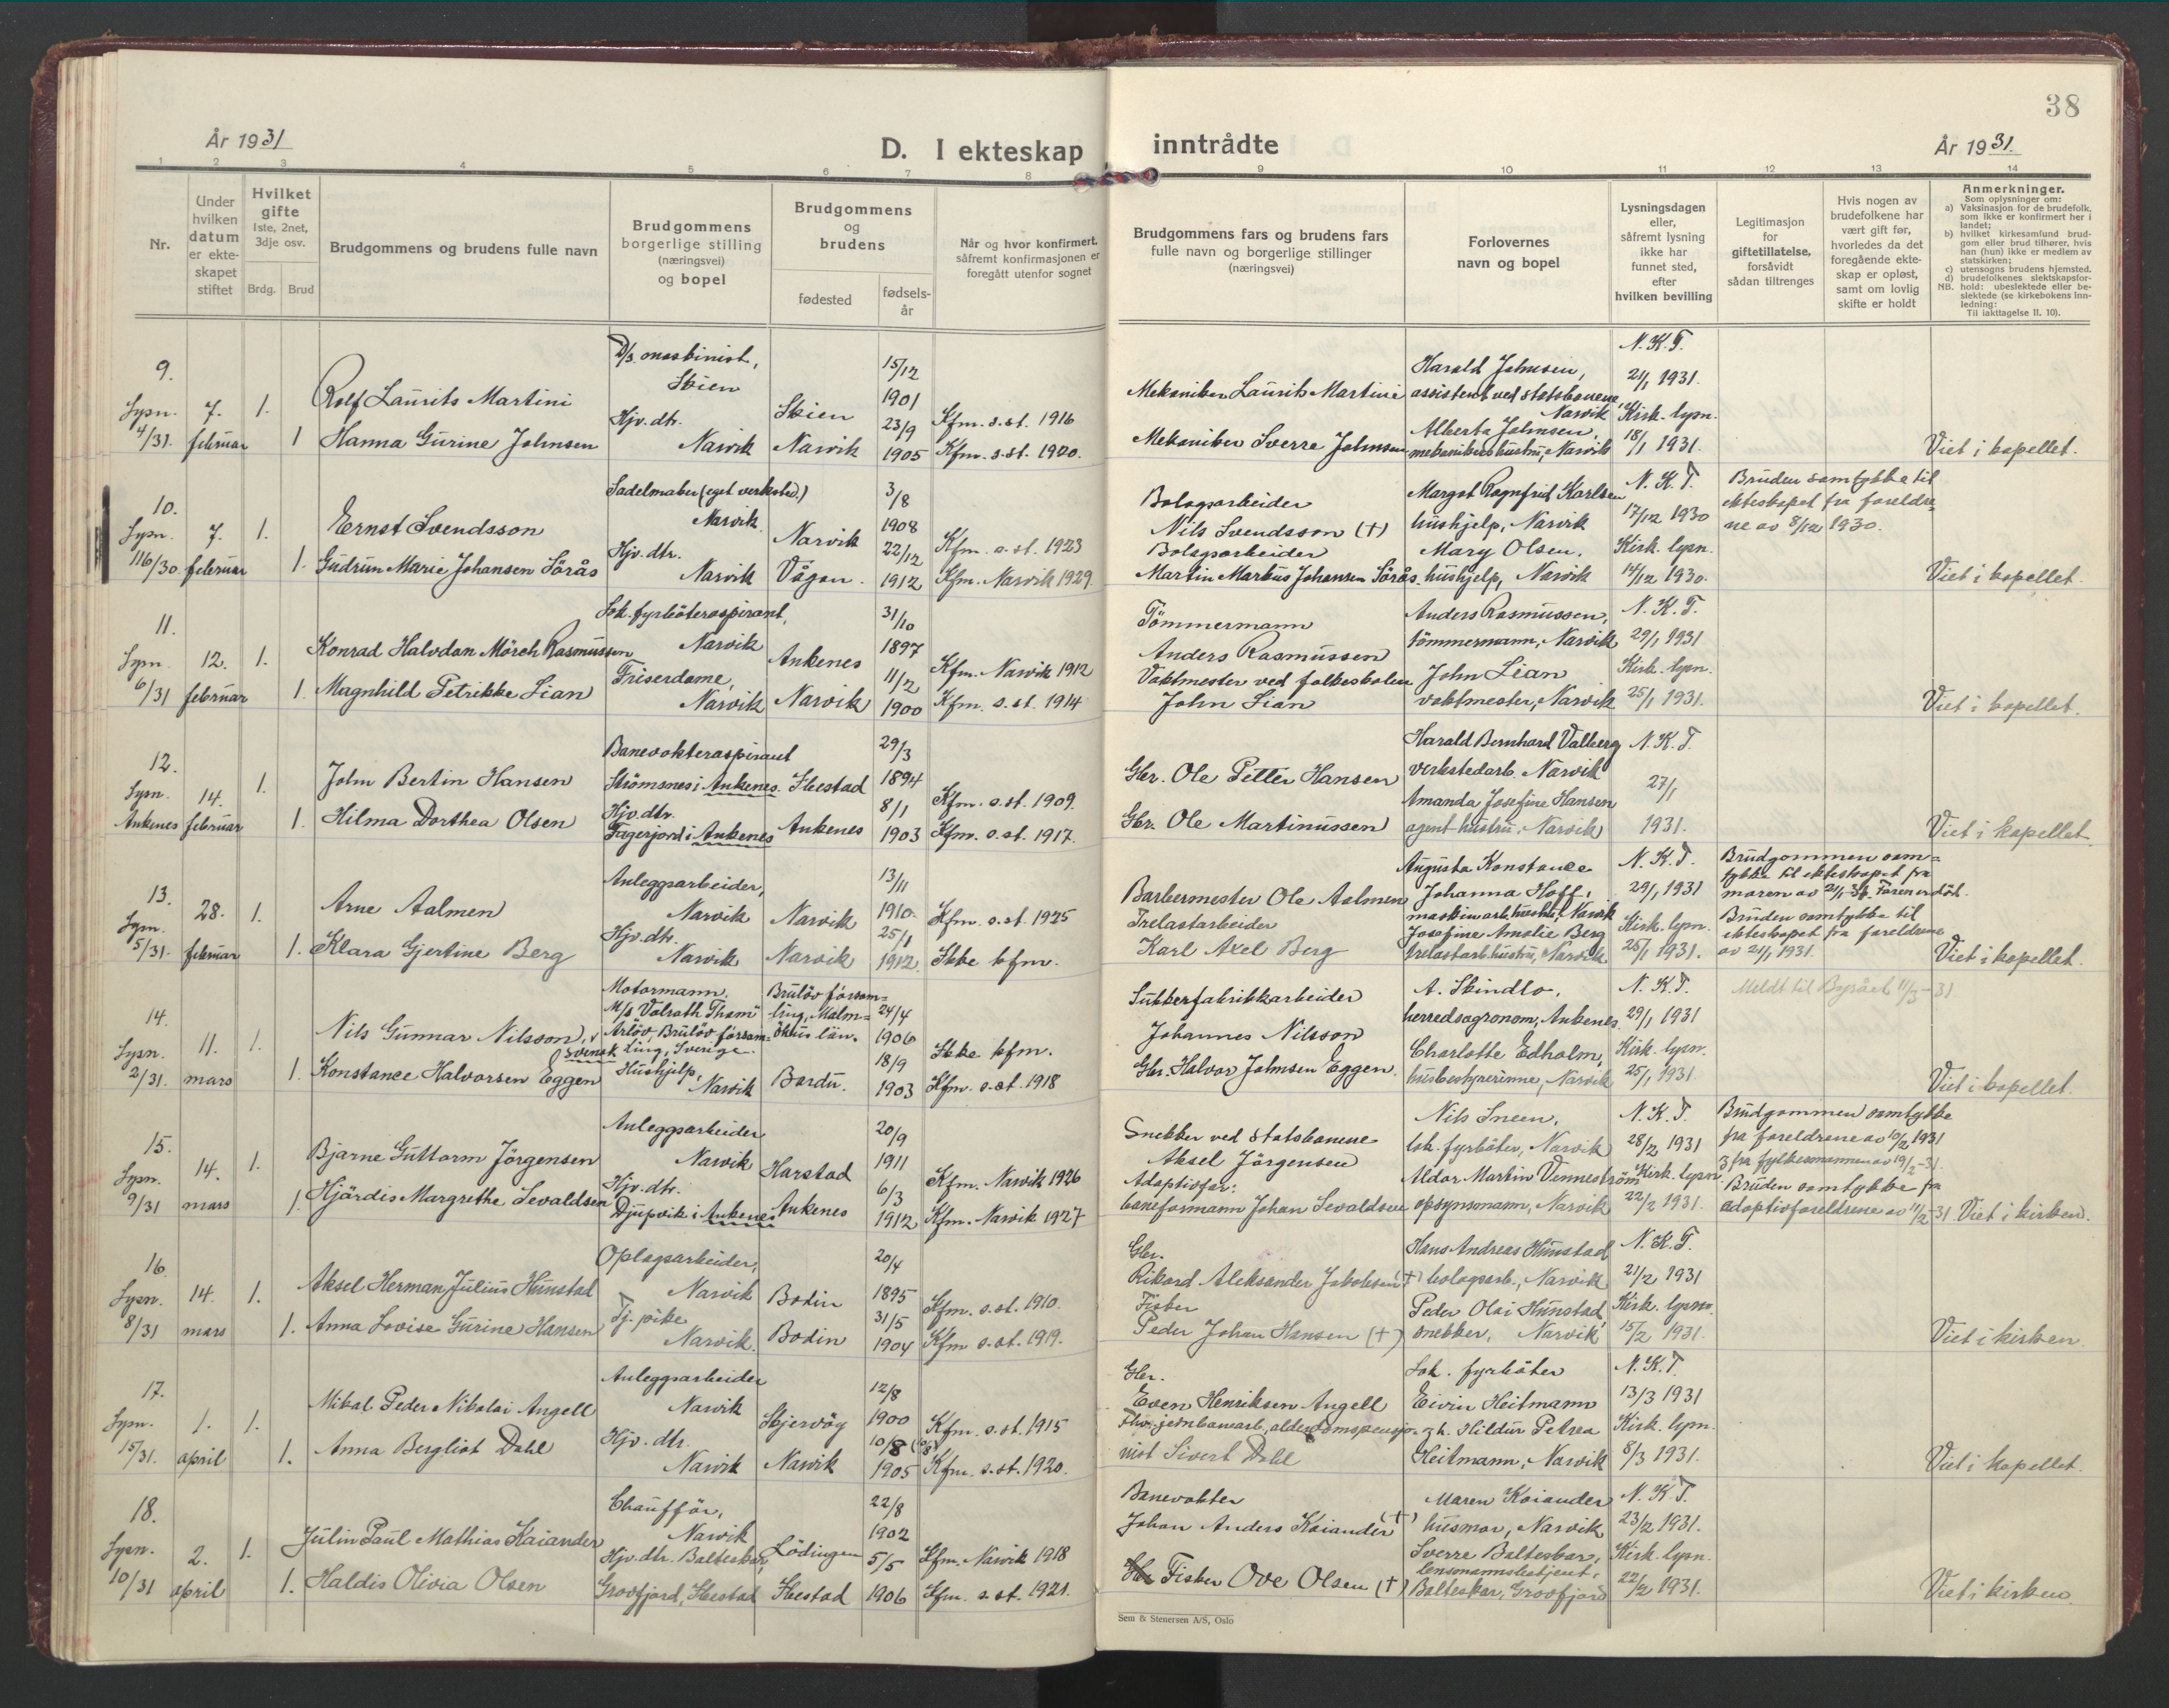 38
År 1931
D. I ekteskap inntrådte
År 1931.
1 2 3 4 5 6 7 8 9 10 11 12 13 14
Nr.
Under hvilken datum er ekteskapet stiftet
Hvilket gifte
1ste, 2net, 3dje osv.
Brdg. Brud
Brudgommens og brudens fulle navn
Brudgommens borgerlige stilling (næringsvei) og bopel
Brudgommens og brudens
fødested
fødselsår
Når og hvor konfirmert, såfremt konfirmasjonen er foregått utenfor sognet
Brudgommens fars og brudens fars fulle navn og borgerlige stillinger (næringsvei)
Forlovernes navn og bopel
Lysningsdagen eller, såfremt lysning ikke har funnet sted, efter hvilken bevilling
Legitimasjon for giftetillatelse, forsåvidt sådan tiltrenges
Hvis nogen av brudefolkene har vært gift før, hvorledes da det foregående ekteskap er opløst, samt om lovlig skifte er holdt
Anmerkninger.
Som oplysninger om:
a) Vaksinasjon for de brudefolk, som ikke er konfirmert her i landet;
b) hvilket kirkesamfund brudgom eller brud tilhører, hvis han (hun) ikke er medlem av statskirken;
c) utensogns brudens hjemsted.
d) brudefolkenes slektskapsforhold: ubeslektede eller beslektede (se kirkebokens Innledning:
NB. Til iakttagelse II. 10).
9.
Lysn. 4/31. 7. februar 1. 1
Rolf Laurits Martini
Hanna Gurine Johnsen
D/s. maskinist, Skien
Hjv. dtr. Narvik
Skien 15/12 1901 Kfm. s. st. 1916
Narvik 23/9 1905 Kfm. s. st. 1920.
Mekaniker Laurits Martini
Mekaniker Sverre Johnsen
Harald Johnsen, assistent ved statsbanene, Narvik
Alberta Johnsen, mekanikers hustru, Narvik
N. K. T. 21/1 1931.
Kirk. lysn. 18/1 1931.
Viet i kapellet.
10.
Lysn. 116/30 7. februar 1. 1.
Ernst Svendsson
Gudrun Marie Johansen Sörås
Sadelmaker (eget verksted.) Narvik
Hjv. dtr. Narvik
Narvik 3/8 1908 Kfm. s. st. 1923
Vågan. 22/12 1912 Kfm. Narvik 1929.
Bolagsarbeider
Nils Svendsson (†)
Bolagsarbeider
Martin Markus Johansen Sörås.
Margot Ragnfrid Karlsen hushjelp, Narvik
Mary Olsen. hushjelp, Narvik
N. K. T. 17/12 1930
Kirk. lysn. 14/12 1930.
Bruden samtykke til ekteskapet fra foreldrene av 8/12 1930.
Viet i kapellet.
11.
Lysn. 6/31 12. februar 1. 1.
Konrad Halvdan Mörch Rasmussen
Magnhild Petrikke Lian
Lok. fyrböteraspirant, Narvik
Friserdame, Narvik
Ankenes 31/10 1897 Kfm. Narvik 1912
Narvik 11/2 1900 Kfm. s. st. 1914
Tömmermann
Anders Rasmussen
Vaktmester ved folkeskolen
John Lian
Anders Rasmussen, tömmermann, Narvik
John Lian vaktmester, Narvik
N. K. T. 29/1 1931
Kirk. lysn. 25/1 1931.
Viet i kapellet.
12.
Lysn. Ankenes 14. februar 1. 1.
John Bertin Hansen
Hilma Dorthea Olsen
Banevokteraspirant Strömsnes i Ankenes.
Hjv. dtr. Fagerjord i Ankenes
Ibestad 29/3 1894 Kfm. s. st. 1909.
Ankenes 8/1 1903 Kfm. s. st. 1917.
Gbr. Ole Petter Hansen
Gbr. Ole Martinussen
Harald Bernhard Valberg verkstedarb. Narvik
Amanda Josefine Hansen agent hustru, Narvik
N. K. T. 27/1 1931.
Viet i kapellet
13.
Lysn. 5/31. 28. februar 1. 1.
Arne Aalmen
Klara Gjertine Berg
Anleggsarbeider, Narvik
Hjv. dtr. Narvik
Narvik 13/11 1910. Kfm. s. st. 1925
Narvik 25/1 1912. Ikke kfm.
Barbermester Ole Aalmen
Trelastarbeider
Karl Axel Berg
Augusta Konstance Johanna Hoff, maskinarb. hustru, Narvik
Josefine Amalie Berg trelastarb. hustru, Narvik
N. K. T. 29/1 1931
Kirk. lysn. 25/1 1931.
Brudgommen samtykke til ekteskapet fra moren av 21/1-31. Faren er död.
Bruden samtykke til ekteskapet fra foreldrene av 21/1 1931.
Viet i kapellet.
14.
Lysn. 2/31. 11. mars 1. 1.
Nils Gunnar Nilsson, svensk
Konstance Halvorsen Eggen
Motormann, M/s Valrath Tham Arlöv, Brulöv församling, Sverige.
Hushjelp, Narvik
Brulöv församling, Malmöhus län. 24/4 1906 Ikke kfm.
Bardu. 18/9 1903 Kfm. s. st. 1918
Sukkerfabrikkarbeider
Johannes Nilsson
Gbr. Halvor Johnsen Eggen.
A. Skindlo, herredsagronom, Ankenes.
Charlotte Edholm, husbestyrerinne, Narvik
N. K. T. 29/1 1931
Kirk. lysn. 25/1 1931.
Meldt til Byrået 11/3-31
Viet i kapellet.
15.
Lysn. 9/31 14. mars 1. 1.
Bjarne Guttorm Jörgensen
Hjördis Margrethe Sevaldsen
Anleggsarbeider Narvik
Hjv. dtr. Djupvik i Ankenes
Harstad 20/9 1911 Kfm. Narvik 1926
Ankenes 6/3 1912 Kfm. Narvik 1927
Snekker ved statsbanene
Aksel Jörgensen
Adoptivfar:
baneformann Johan Sevaldsen
Nils Sneen, lok. fyrböter, Narvik
Aldor Martin Venneström opsynsmann, Narvik
N. K. T. 28/2 1931
Kirk. lysn. 22/2 1931.
Brudgommen samtykke fra foreldrene av 10/2 1931 & fra fylkesmannen av 19/2-31.
Bruden samtykke fra adoptivforeldrene av 11/2-31
Viet i kirken.
16.
Lysn. 8/31 14. mars 1. 1.
Aksel Herman Julius Hunstad
Anna Lovise Gurine Hansen
Oplagsarbeider, Narvik
Tj. pike Narvik.
Bodin 20/4 1895 Kfm. s. st. 1910.
Bodin 31/5 1904 Kfm s. st. 1919.
Gbr.
Rikard Aleksander Jakobsen (†)
Fisker
Peder Johan Hansen (†)
Hans Andreas Hunstad bolagsarb., Narvik
Peder Olai Hunstad snekker, Narvik
N. K. T. 21/2 1931
Kirk. lysn. 15/2 1931.
Viet i kirken.
17.
Lysn. 15/31. 1. april 1. 1.
Mikal Peder Nikolai Angell
Anna Bergliot Dahl
Anleggsarbeider Narvik
Hjv. dtr. Narvik
Skjervöy 12/8 1900 Kfm. s. st. 1915
Narvik 10/8 1905 Kfm. s. st. 1920.
Gbr.
Even Henriksen Angell
Fhv. jernbanearb., alderdomspensjonist Sivert Dahl
Lok. fyrböter Eivin Heitmann
og h. Hildur Petrea Heitmann, Narvik
N. K. T. 13/3 1931
Kirk. lysn. 8/3 1931.
Viet i kapellet.
18.
Lysn. 10/31 2. april 1. 1.
Julin Paul Mathias Kaiander
Haldis Olivia Olsen
Chaufför, Narvik
Hjv. dtr. Balteskar, Grovfjord, Ibestad
Lödingen 22/8 1902 Kfm. Narvik 1918
Ibestad 5/5 1906 Kfm. s. st. 1921.
Banevokter
Johan Anders Kaiander (†)
Fisker Ove Olsen (†)
Maren Kaiander husmor, Narvik
Sverre Balteskar, lensmannsbetjent, Balteskar, Grovfjord
N. K. T. 23/2 1931.
Kirk. lysn. 22/2 1931.
Viet i kirken.
Sem & Stenersen A/S, Oslo